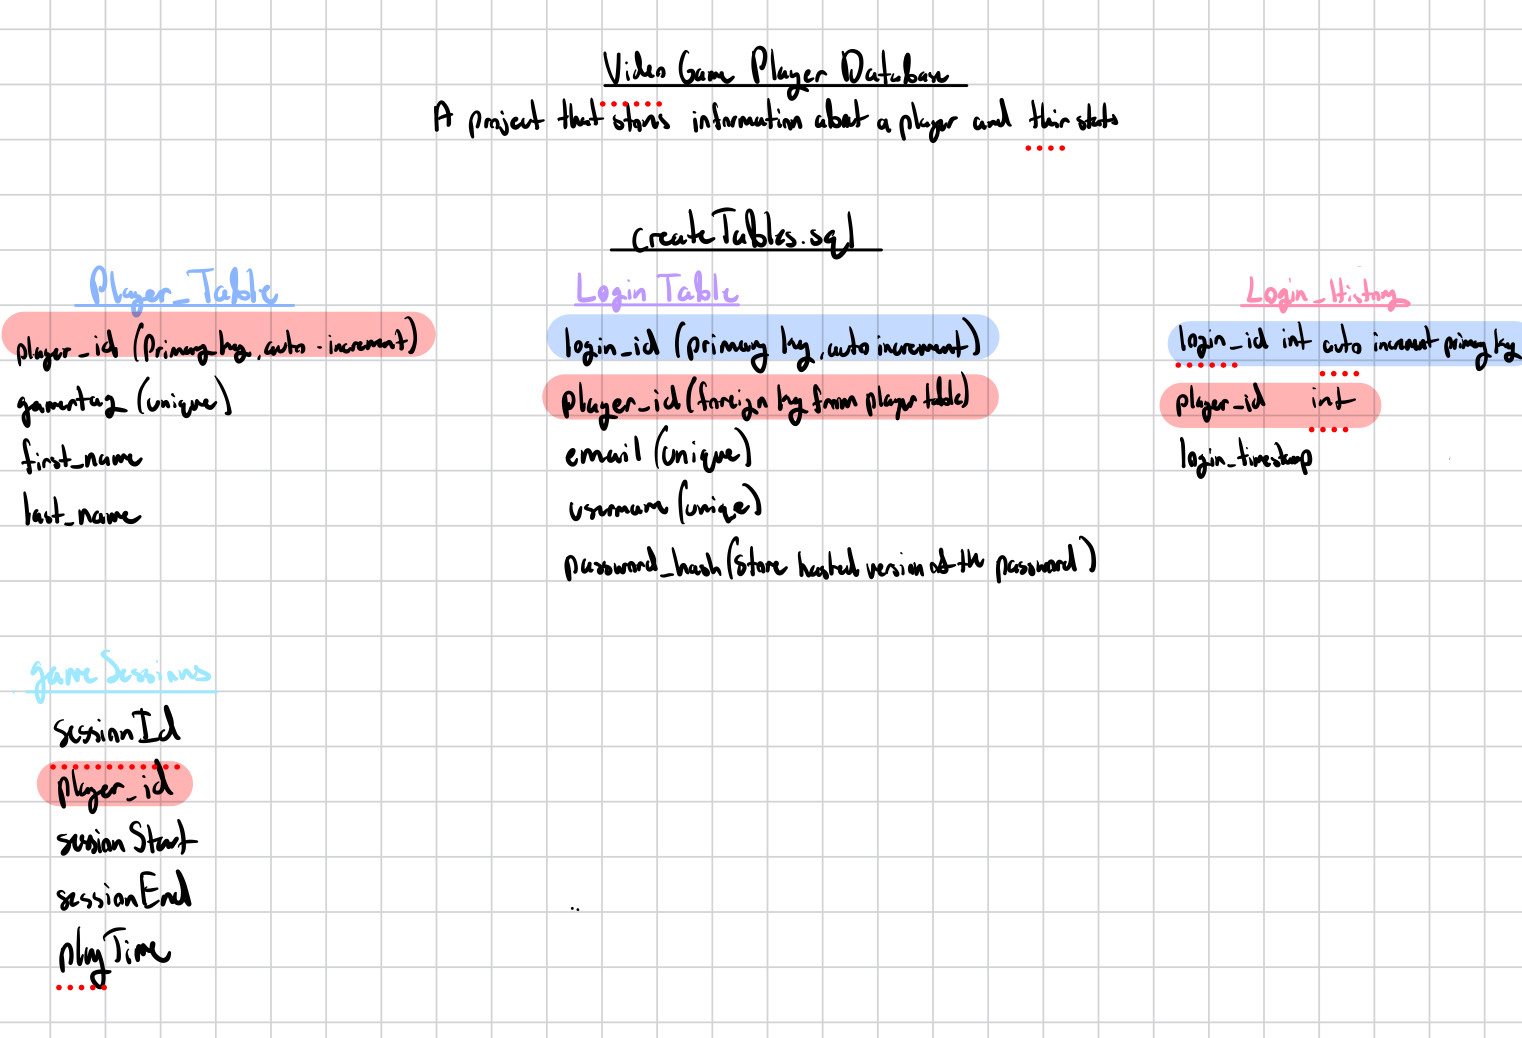 Video Game Player Database
A project that stores information about a player and their stats
createTables.sql
Player_Table
player_id (Primary key, auto-increment)
gamertag (unique)
first_name
last_name
Login Table
login_id (primary key, auto increment)
player_id (foreign key from player table)
email (unique)
username (unique)
password_hash (store hashed version of the password)
Login_History
login_id int auto increment primary key
player_id int
login_timestamp
gameSessions
sessionId
player_id
sessionStart
sessionEnd
playTime